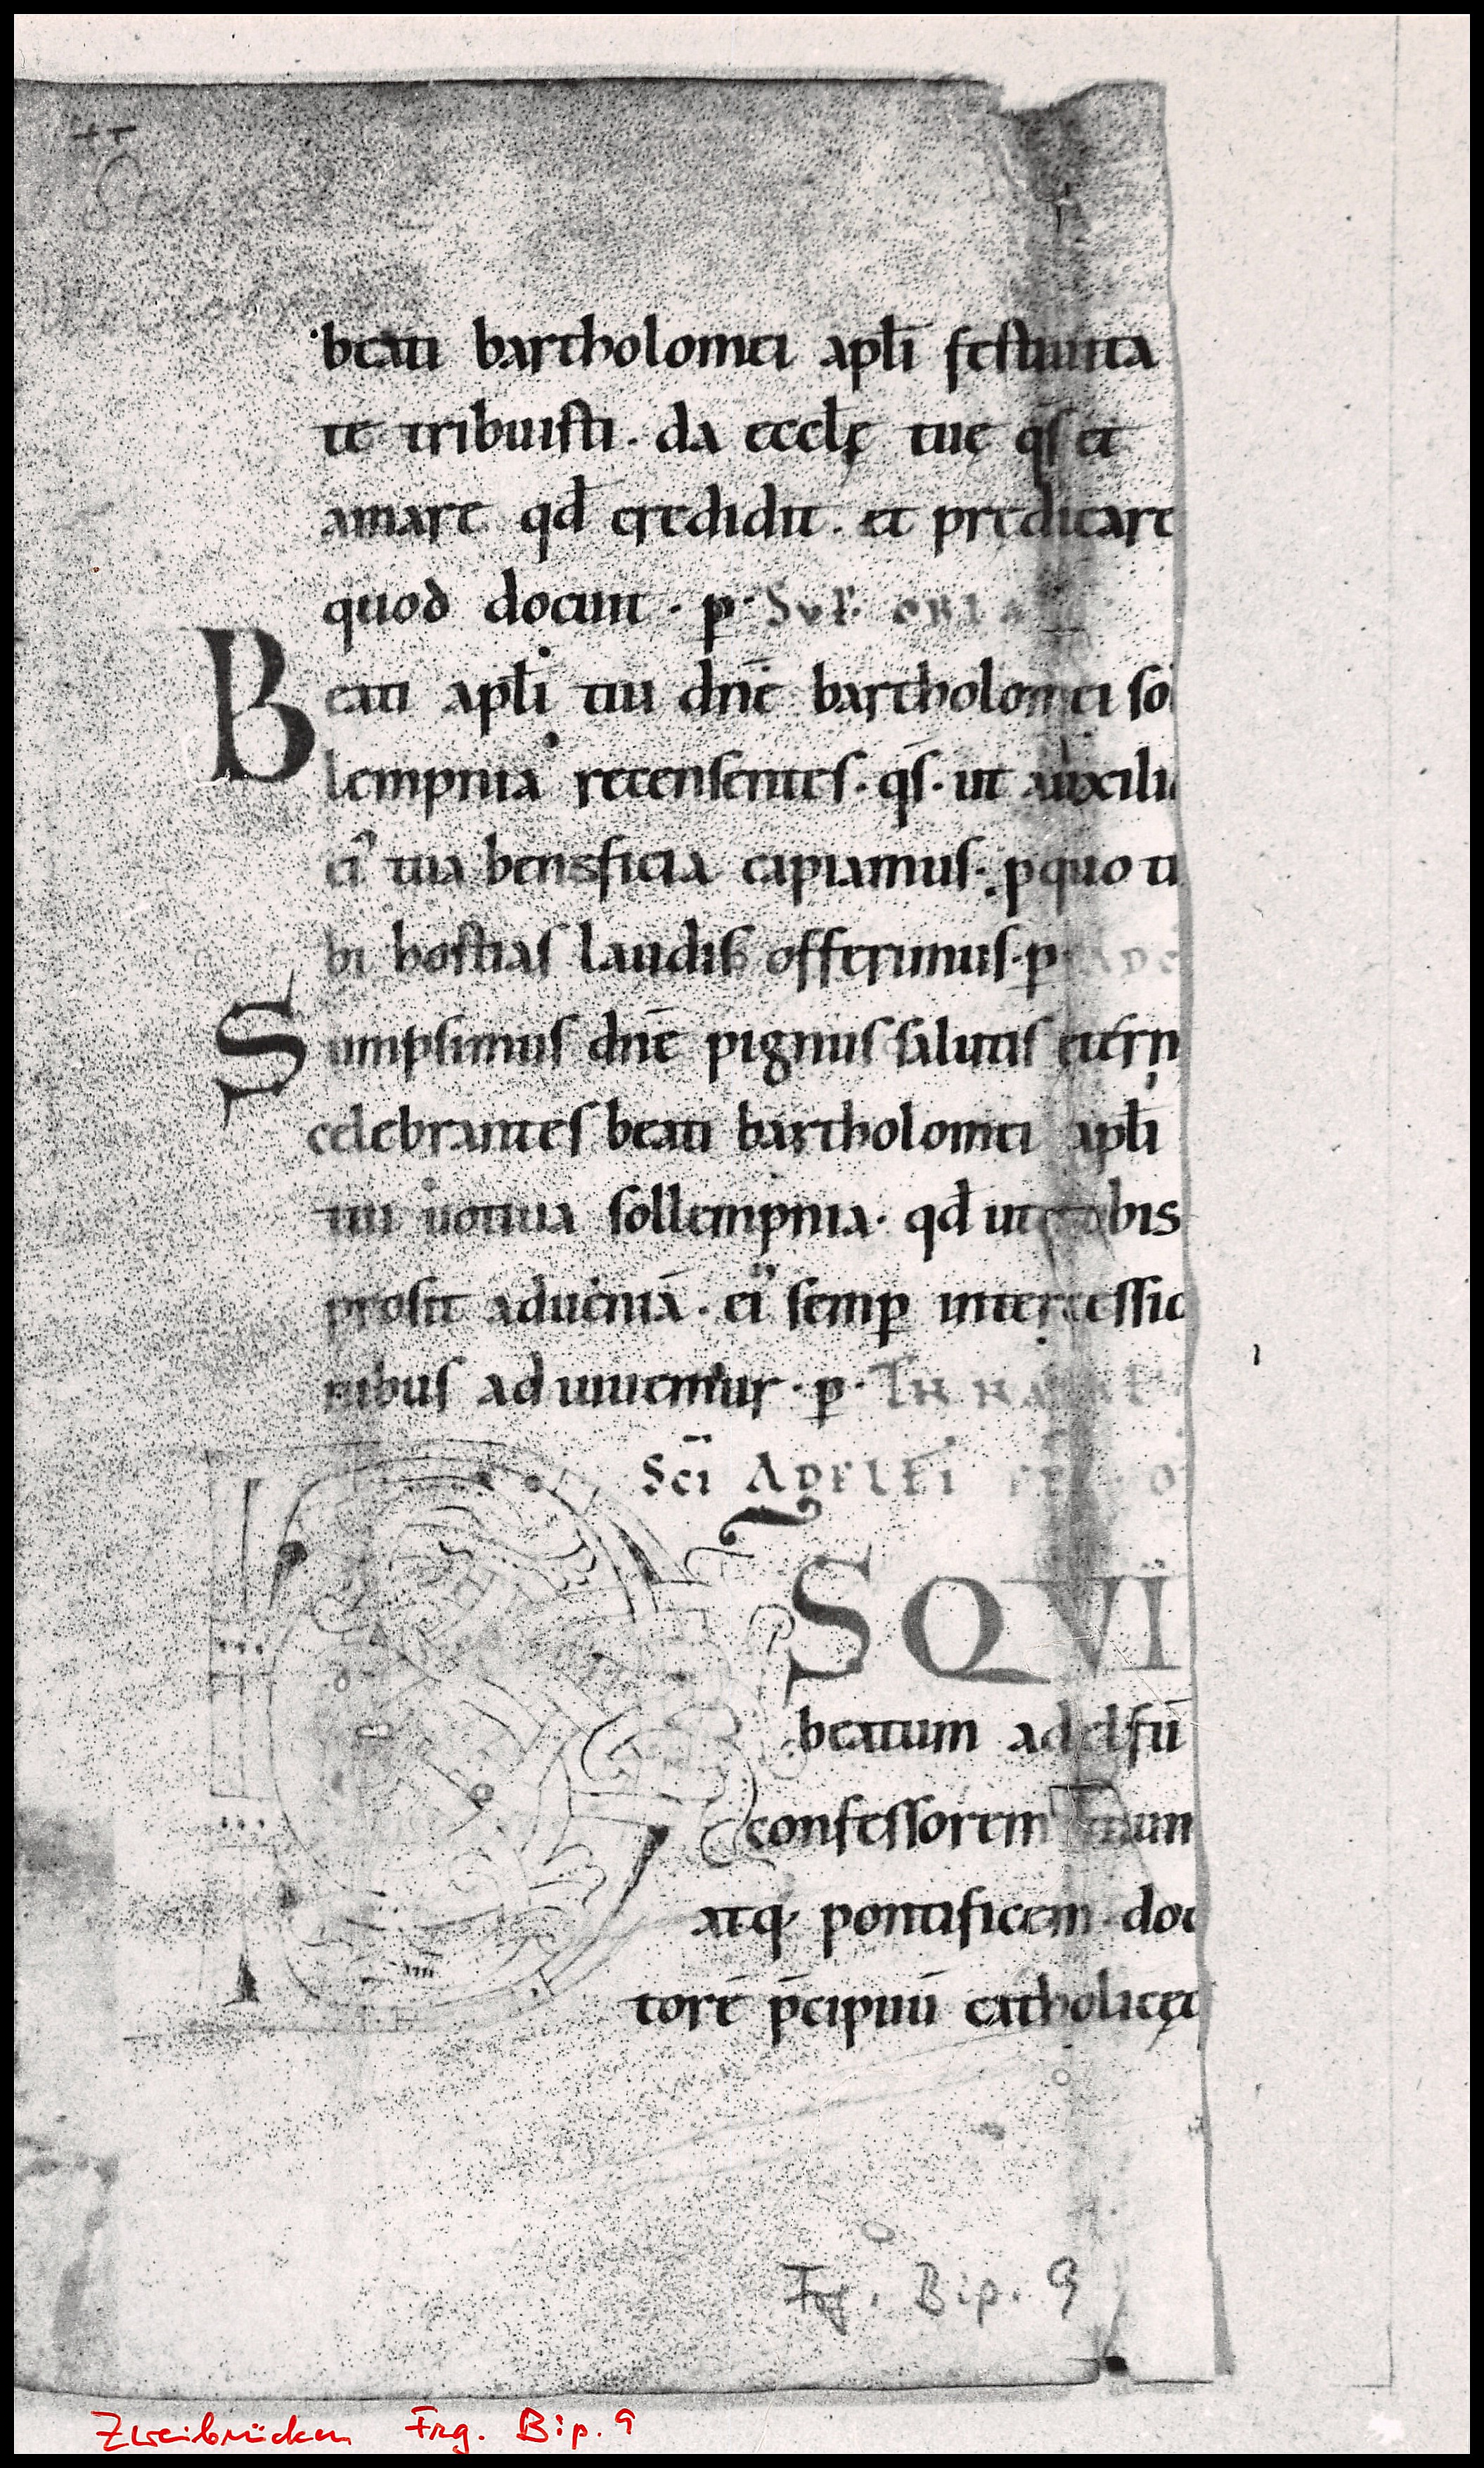 beati bartholomei apłi festiuita
te tribuisti. da eccłę tuę qs̄ et
amare qd̄ credidit. et predicare
quod docuit. p. SUP. OBLA
Beati apłi tui dn̄e bartholomei so
lempnia recensentes. qs̄. ut auxili
ei᾽ tua beneficia capiamus. p quo ti
bi hostias laudis offerimus. p AD CO
Sumpsimus dn̄e pignus salutis etern
celebrantes beati bartholomei apłi
tui uotiua sollempnia. qd̄ ut nobis
prosit ad ueniā. ei᾽ semp intercessio
nibus ad iuuemur. p. IN NAT
Sc̄i ADELFI
DS QVI
beatum adelfū
confessorem tuum
atq; pontificem doc
torē p̄cipuū catholicę
Frg. Bip. 9
Zweibrücken Frg. Bip. 9